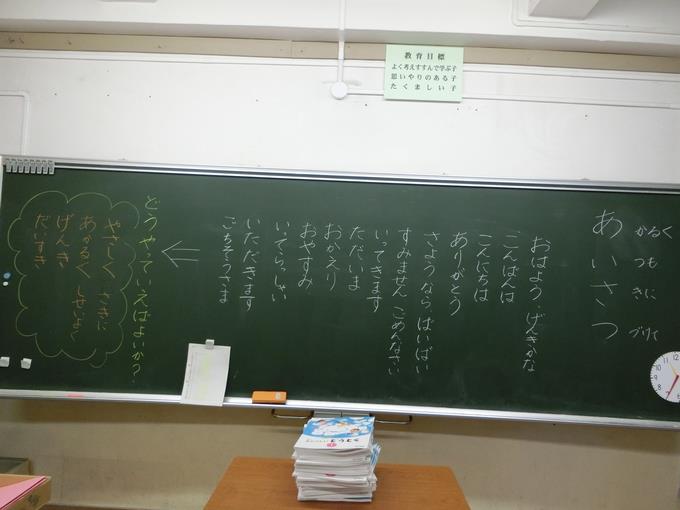 教育目標
よく考えすすんで学ぶ子
思いやりのある子
たくましい子
あかるく
いつも
さきに
つづけて
おはよう げんきかな
こんばんは
こんにちは
ありがとう
さようなら ばいばい
すみません ごめんなさい
いってきます
ただいま
おかえり
おやすみ
いってらっしゃい
いただきます
ごちそうさま
どうやっていえばよいか?
やさしく さきに
あかるく しせいよく
げんき
だいすき
どうとく